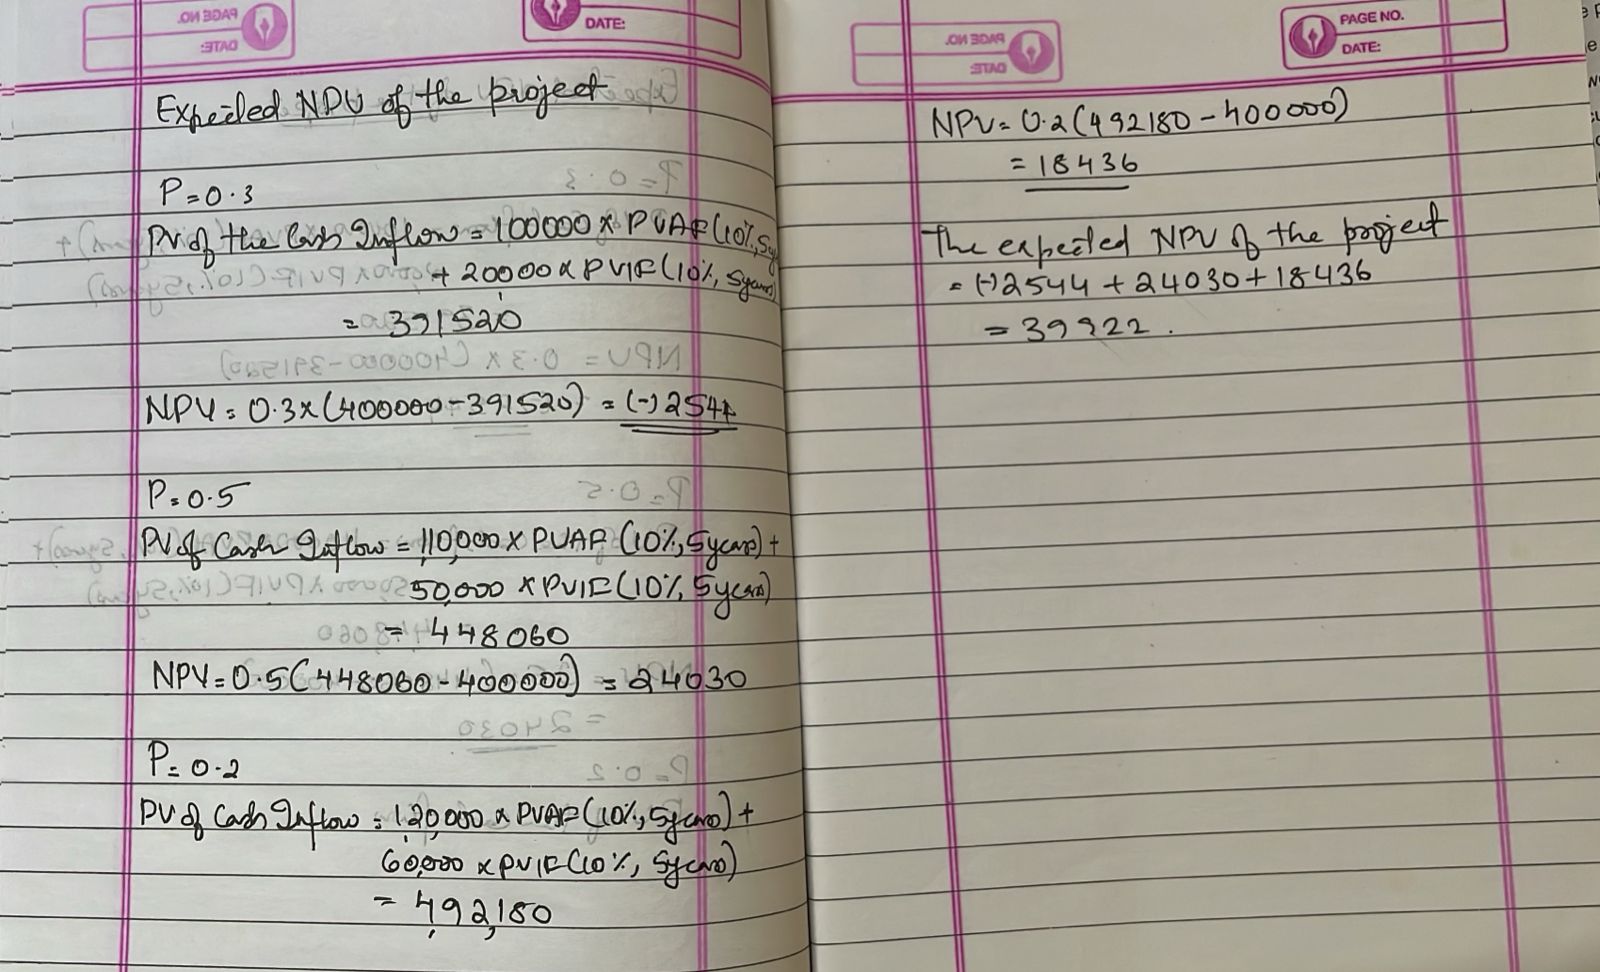 DATE:
Expected NPV of the project
P=0.3
PV of the Cash Inflow = 100000 x PVAF (10%, 5y
+ 20000 x PVIF (10%, 5years)
= 391520
NPV = 0.3x(400000-391520) = (-) 2544
P=0.5
PV of Cash Inflow = 110,000 x PVAF (10%, 5years) +
50,000 x PVIF (10%, 5years)
= 448060
NPV = 0.5(448060-400000) = 24030
P=0.2
PV of Cash Inflow = 1,20,000 x PVAF (10%, 5years) +
60,000 x PVIF (10%, 5years)
= 4,92,180
PAGE NO.
DATE:
NPV = 0.2 (492180-400000)
= 18436
The expected NPV of the project
= (-) 2544 + 24030 + 18436
= 39922.